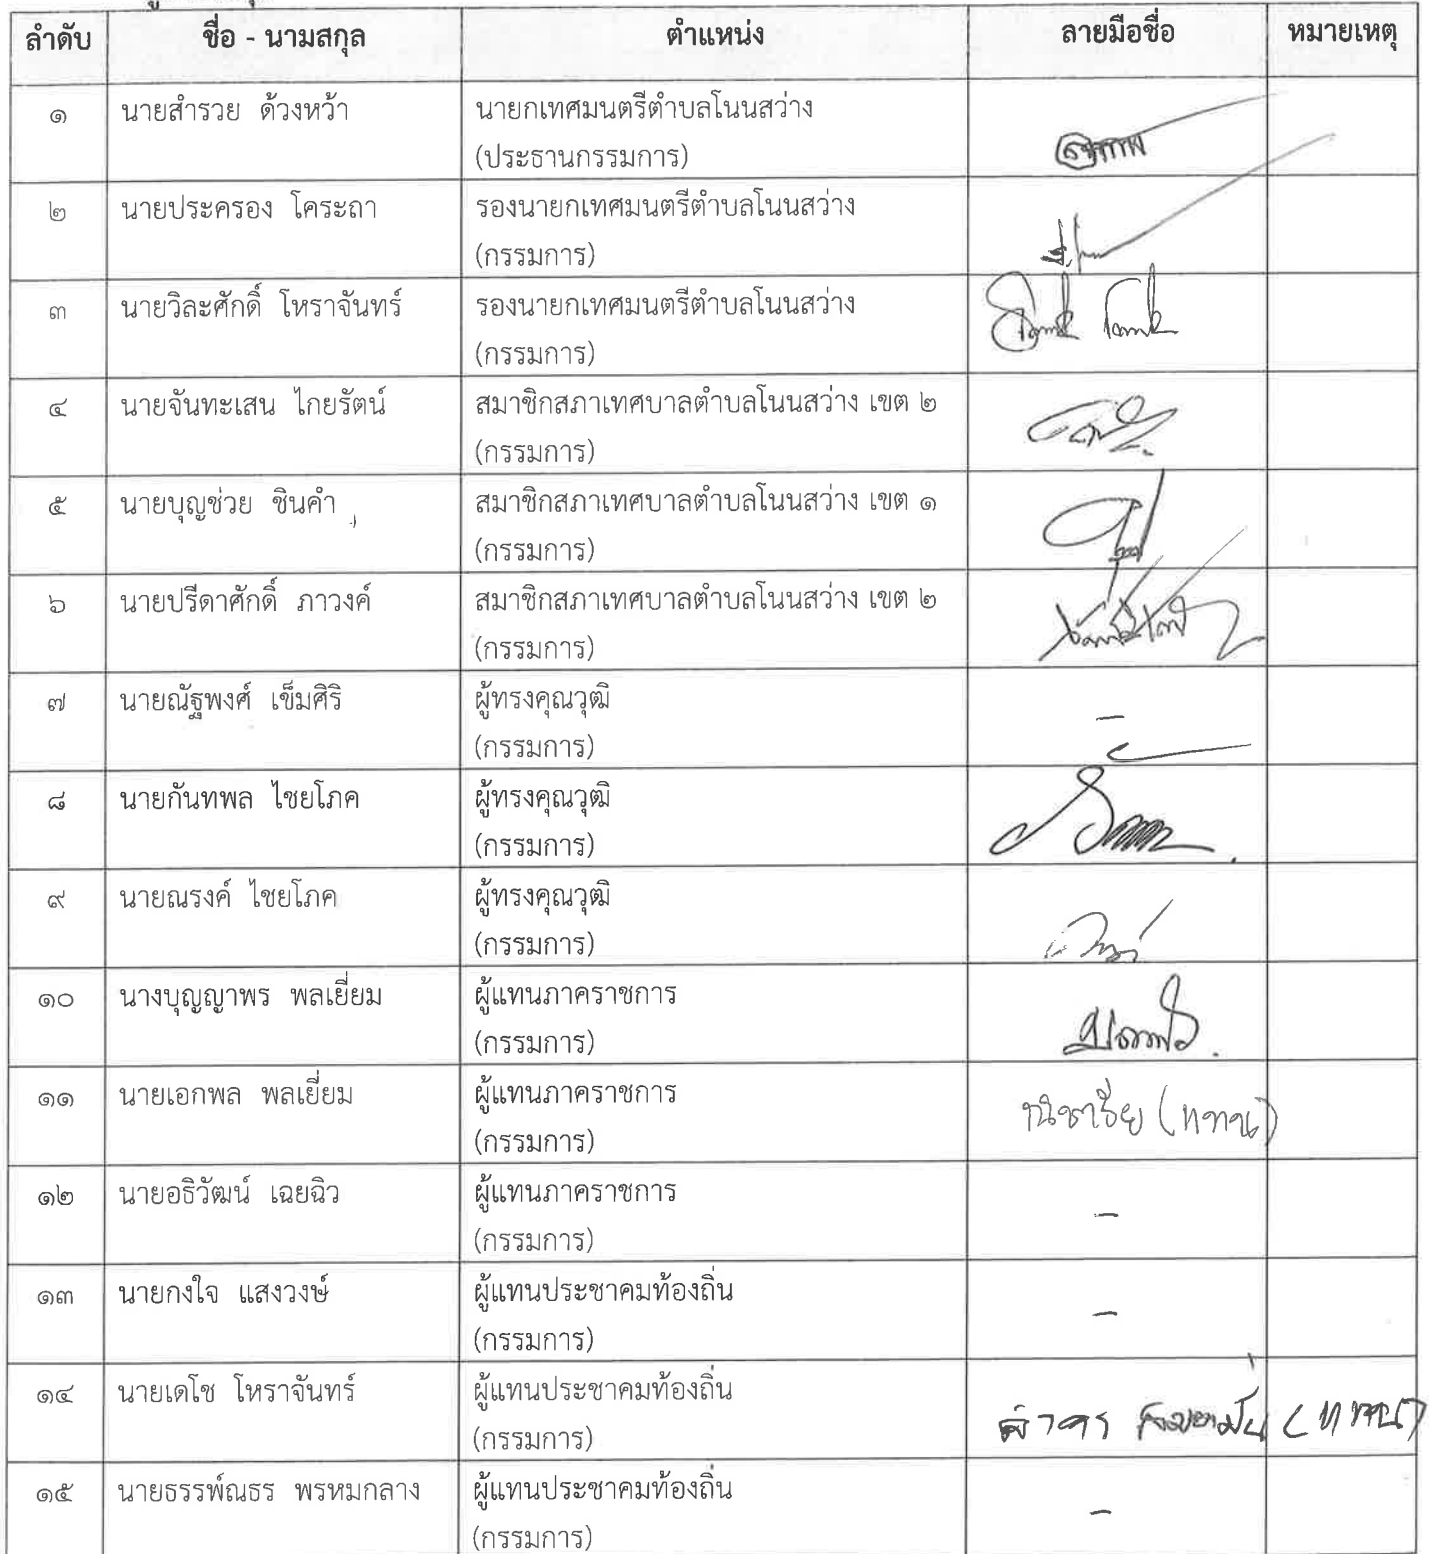 ลำดับ ชื่อ - นามสกุล ตำแหน่ง ลายมือชื่อ หมายเหตุ
๑ นายสำรวย ด้วงหว้า นายกเทศมนตรีตำบลโนนสว่าง
(ประธานกรรมการ)
๒ นายประครอง โคระถา รองนายกเทศมนตรีตำบลโนนสว่าง
(กรรมการ)
๓ นายวิละศักดิ์ โหราจันทร์ รองนายกเทศมนตรีตำบลโนนสว่าง
(กรรมการ)
๔ นายจันทะเสน ไกยรัตน์ สมาชิกสภาเทศบาลตำบลโนนสว่าง เขต ๒
(กรรมการ)
๕ นายบุญช่วย ชินคำ สมาชิกสภาเทศบาลตำบลโนนสว่าง เขต ๑
(กรรมการ)
๖ นายปรีดาศักดิ์ ภาวงค์ สมาชิกสภาเทศบาลตำบลโนนสว่าง เขต ๒
(กรรมการ)
๗ นายณัฐพงศ์ เข็มศิริ ผู้ทรงคุณวุฒิ -
(กรรมการ)
๘ นายกันทพล ไชยโภค ผู้ทรงคุณวุฒิ
(กรรมการ)
๙ นายณรงค์ ไชยโภค ผู้ทรงคุณวุฒิ
(กรรมการ)
๑๐ นางบุญญาพร พลเยี่ยม ผู้แทนภาคราชการ
(กรรมการ)
๑๑ นายเอกพล พลเยี่ยม ผู้แทนภาคราชการ (แทน)
(กรรมการ)
๑๒ นายอธิวัฒน์ เฉยฉิว ผู้แทนภาคราชการ -
(กรรมการ)
๑๓ นายกงใจ แสงวงษ์ ผู้แทนประชาคมท้องถิ่น -
(กรรมการ)
๑๔ นายเดโช โหราจันทร์ ผู้แทนประชาคมท้องถิ่น (แทน)
(กรรมการ)
๑๕ นายธรรพ์ณธร พรหมกลาง ผู้แทนประชาคมท้องถิ่น -
(กรรมการ)